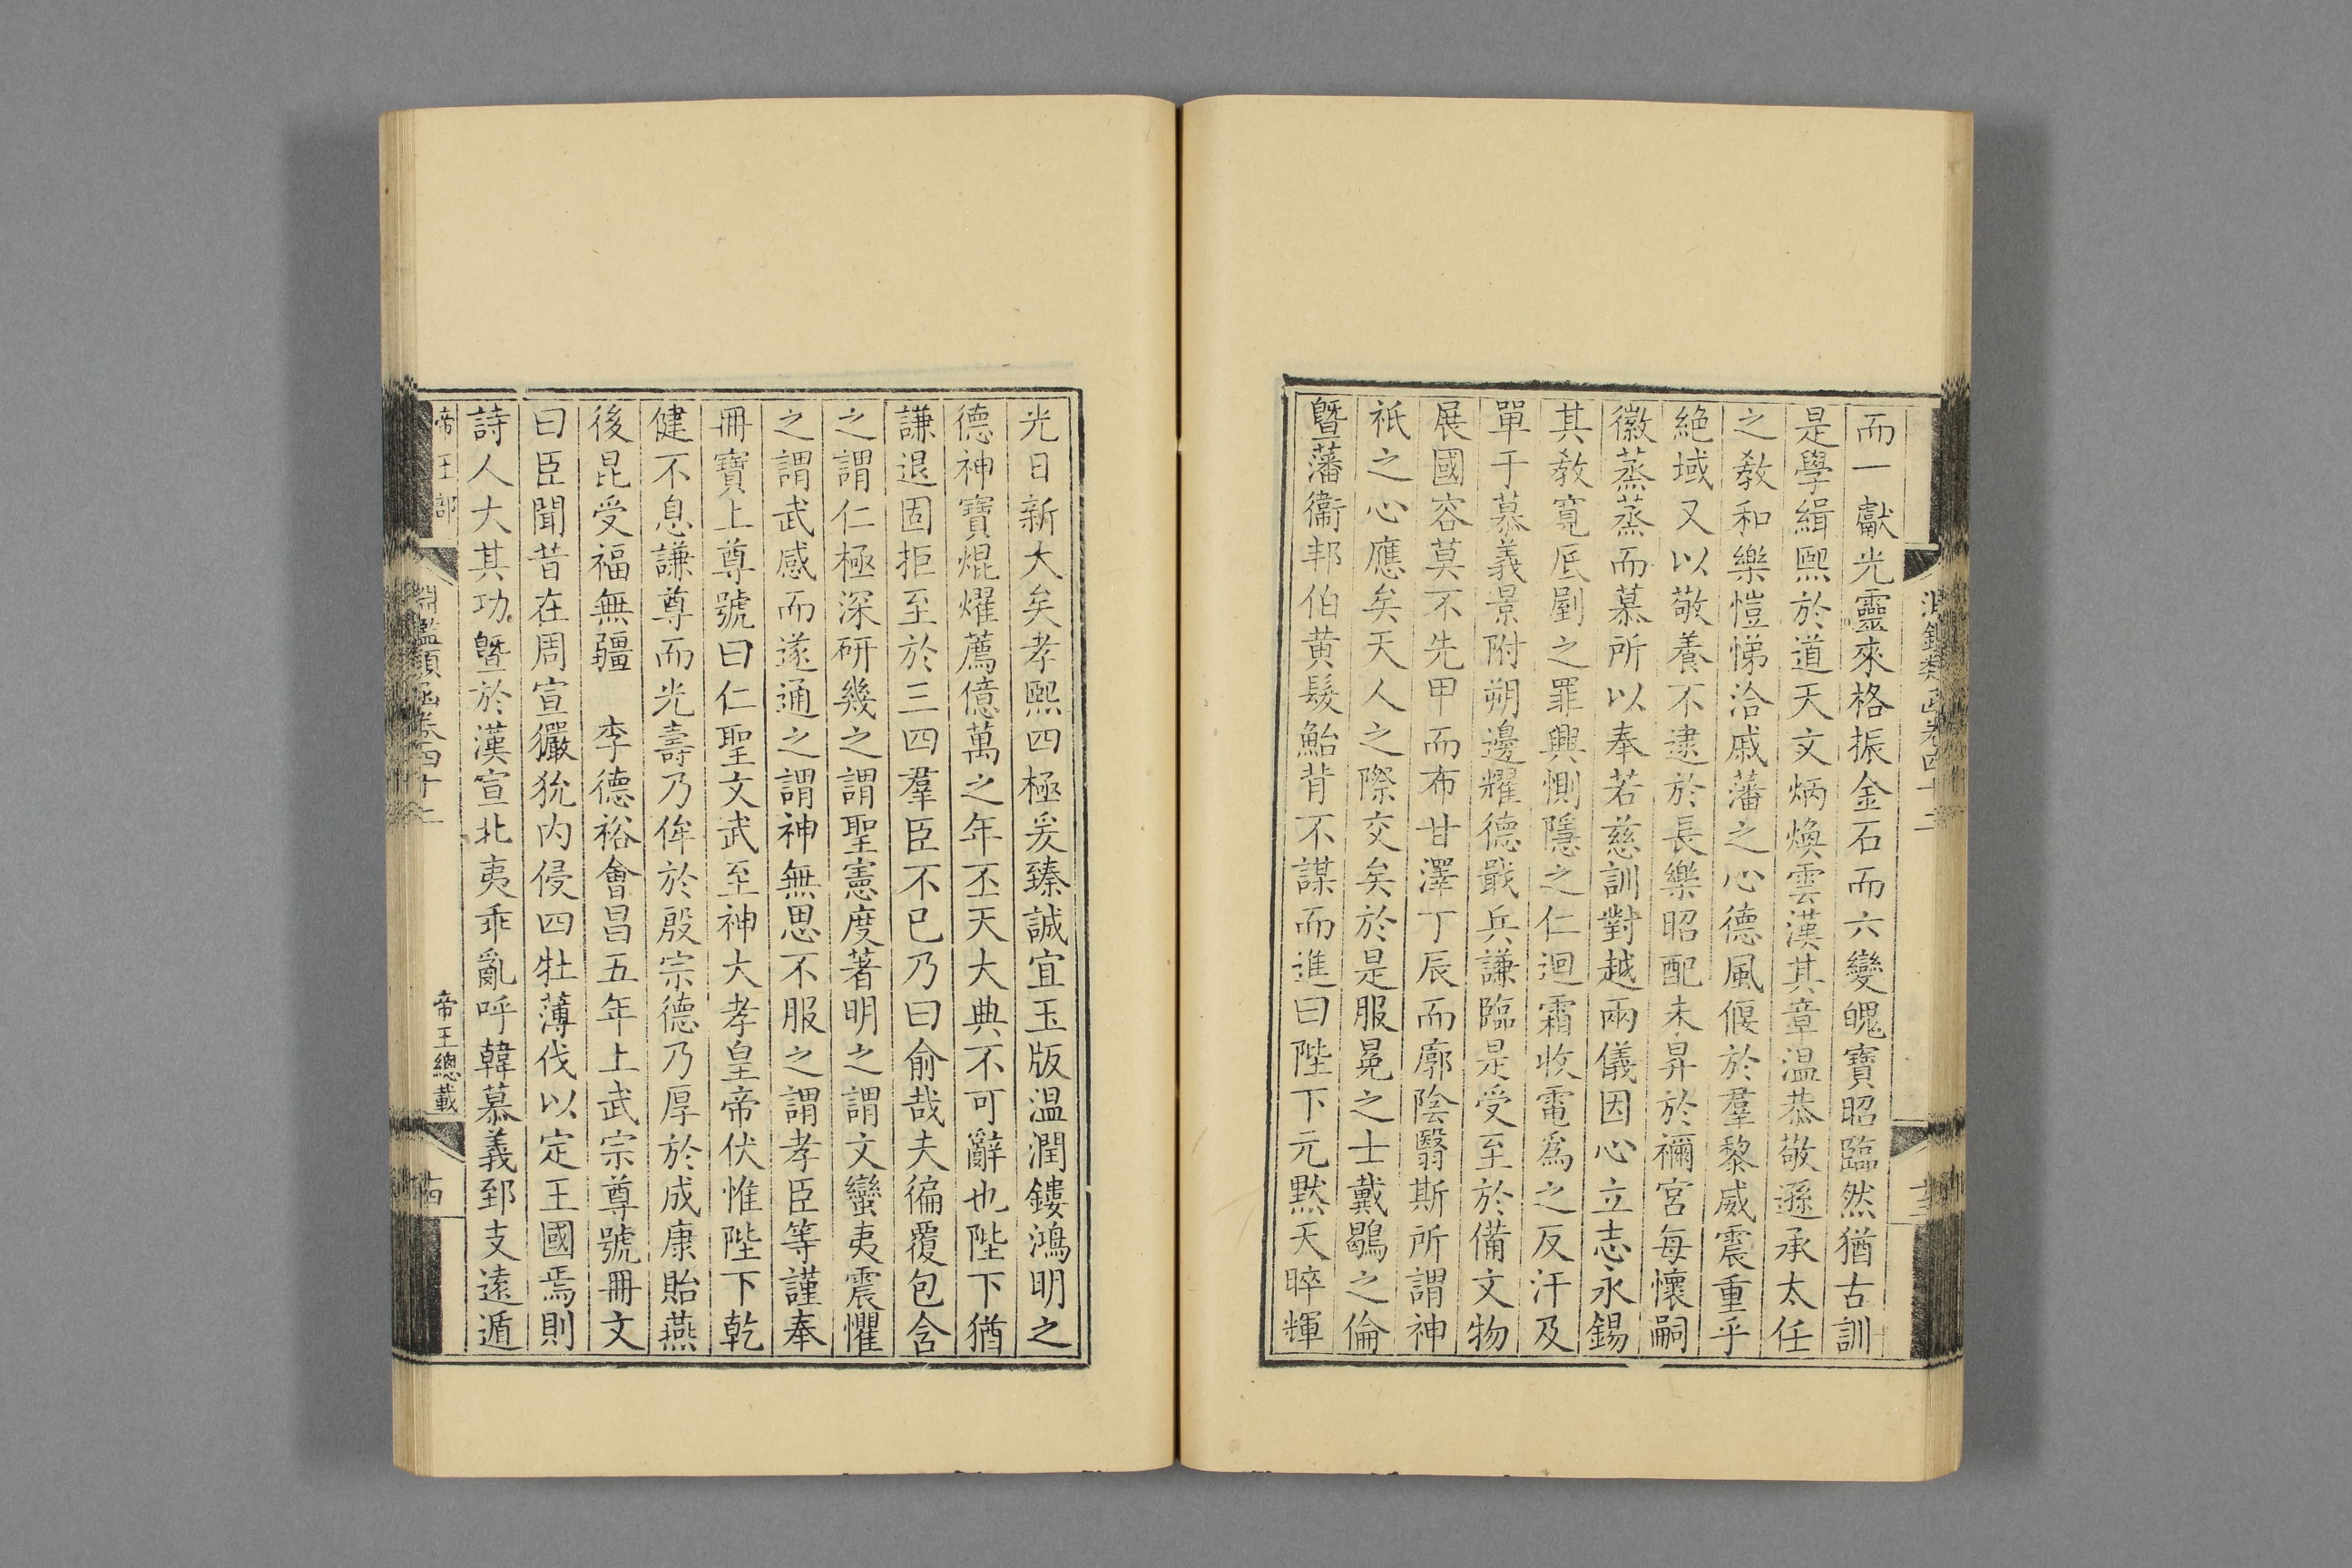 而一獻光靈來格振金石而六變睍寶昭臨然猶古訓
是學緝熙於道天文炳煥雲漢其章温恭敬遜承太任
之教和樂愷悌洽戚藩之心德風偃於羣黎威震重乎
絕域又以敬養不逮於長樂昭配未昇於禰宮每懷嗣
徽蒸蒸而慕所以奉若慈訓對越兩儀因心立志永錫
其教寬底劚之罪興惻隱之仁迴霜收電爲之反汗及
單于慕義景附朔邊耀德戢兵謙臨是受至於備文物
展國容莫不先甲而布甘澤丁辰而廓陰翳斯所謂神
祇之心應矣天人之際交矣於是服冕之士戴鶡之倫
曁藩衞邦伯黄髮鮐背不謀而進曰陛下元默天晬輝
光日新大矣孝熙四極爰臻誠宜玉版温潤鏤鴻明之
德神寶焜燿薦億萬之年丕天大典不可辭也陛下猶
謙退固拒至於三四羣臣不已乃曰俞哉夫徧覆包含
之謂仁極深研幾之謂聖憲度著明之謂文蠻夷震懼
之謂武感而遂通之謂神無思不服之謂孝臣等謹奉
冊寶上尊號曰仁聖文武至神大孝皇帝伏惟陛下乾
健不息謙尊而光壽乃侔於殷宗德乃厚於成康貽燕
後昆受福無疆　李德裕會昌五年上武宗尊號冊文
曰臣聞昔在周宣玁狁内侵四牡薄伐以定王國焉則
詩人大其功曁於漢宣北夷乖亂呼韓慕義郅支遠遁
帝王部
淵鑑類函卷四十二
帝王總載
十四